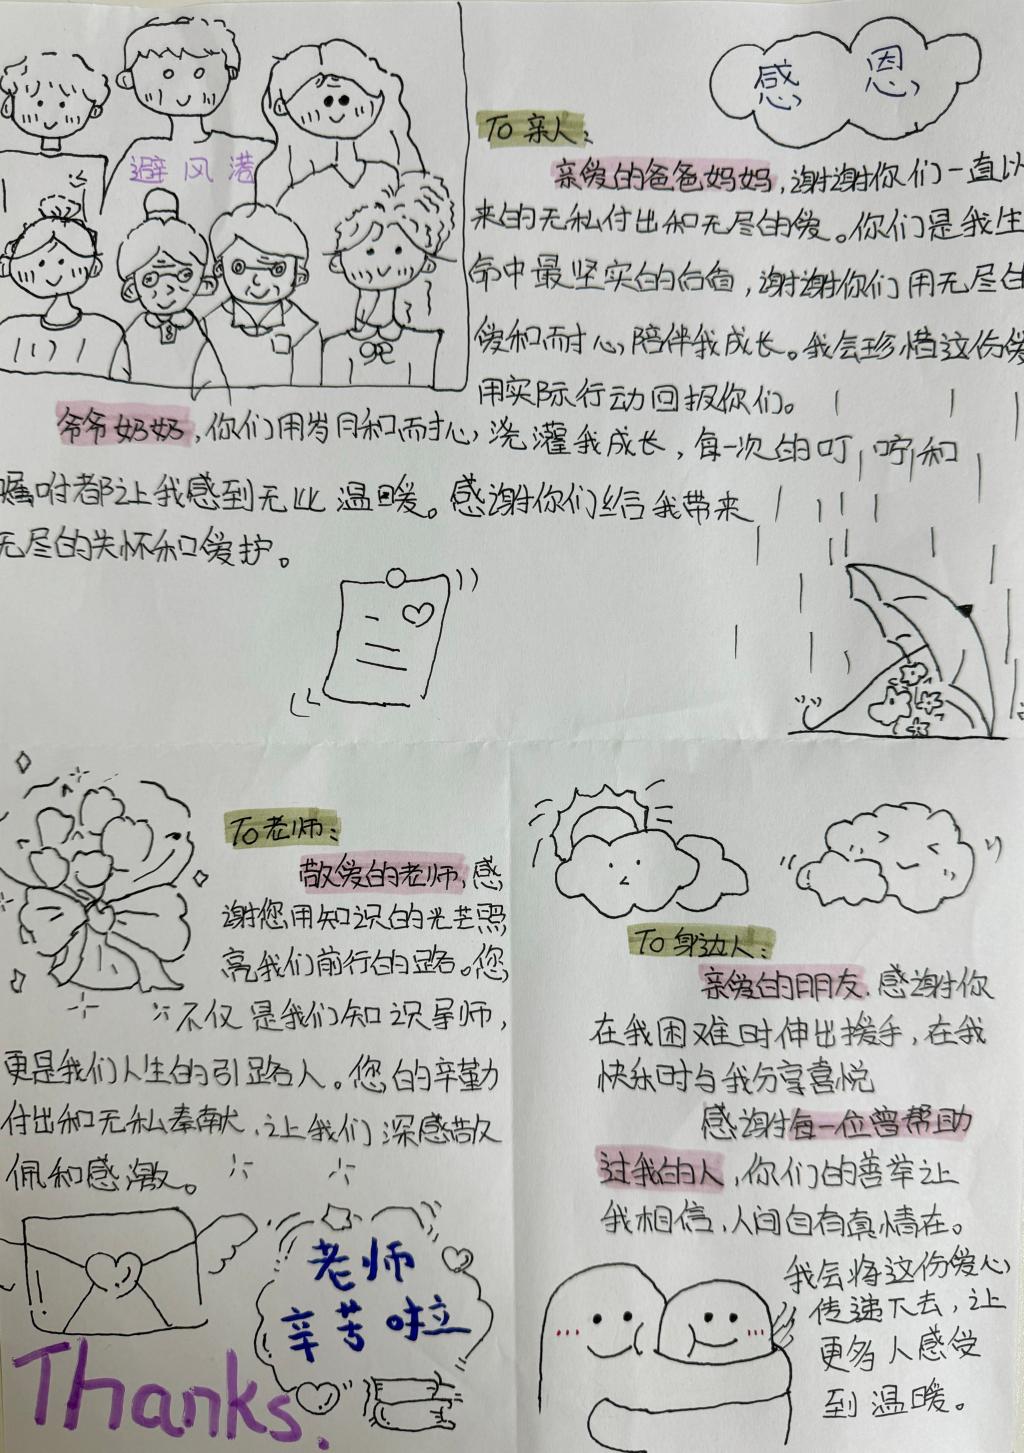 感恩
避风港
To 亲人:
亲爱的爸爸妈妈,谢谢你们一直以
来的无私付出和无尽的爱。你们是我生
命中最坚实的后盾,谢谢你们用无尽的
爱和耐心陪伴我成长。我会珍惜这份爱
用实际行动回报你们。
爷爷奶奶,你们用岁月和耐心浇灌我成长,每一次的叮咛和
嘱咐都让我感到无比温暖。感谢你们给我带来
无尽的关怀和爱护。
To 老师:
敬爱的老师,感
谢您用知识的光芒照
亮我们前行的路。您
不仅是我们知识导师,
更是我们人生的引路人。您的辛勤
付出和无私奉献,让我们深感敬
佩和感激。
老师
辛苦啦
Thanks.
To 身边人:
亲爱的朋友.感谢你
在我困难时伸出援手,在我
快乐时与我分享喜悦
感谢每一位曾帮助
过我的人,你们的善举让
我相信,人间自有真情在。
我会将这份爱心
传递下去,让
更多人感受
到温暖。